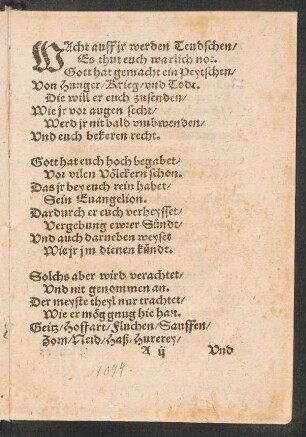 WAcht auff jr werden Teudschen/
Es thut euch warlich not.
Gott hat gemacht ein Peytschen/
Von Hunger/ Krieg/ vnd Todt.
Die will er euch zusenden/
Wie jr vor augen secht/
Werd jr nit bald vmbwenden/
Vnd euch bekeren recht.
Gott hat euch hoch begabet/
Vor vilen Völckern schon.
Das jr bey euch rein habet/
Sein Euangelion.
Dardurch er euch verheysset/
Vergebung ewrer Sündt/
Vnd auch darneben weyset
Wie jr jm dienen kündt.
Solchs aber wird verachtet/
Vnd nit genommen an.
Der meyste theyl nur trachtet/
Wie er mög gnug hie han.
Geitz/ Hoffart/ Fluchen/ Sauffen/
Zorn/ Neid/ Haß/ Hurerey/
A ij Vnd
1094